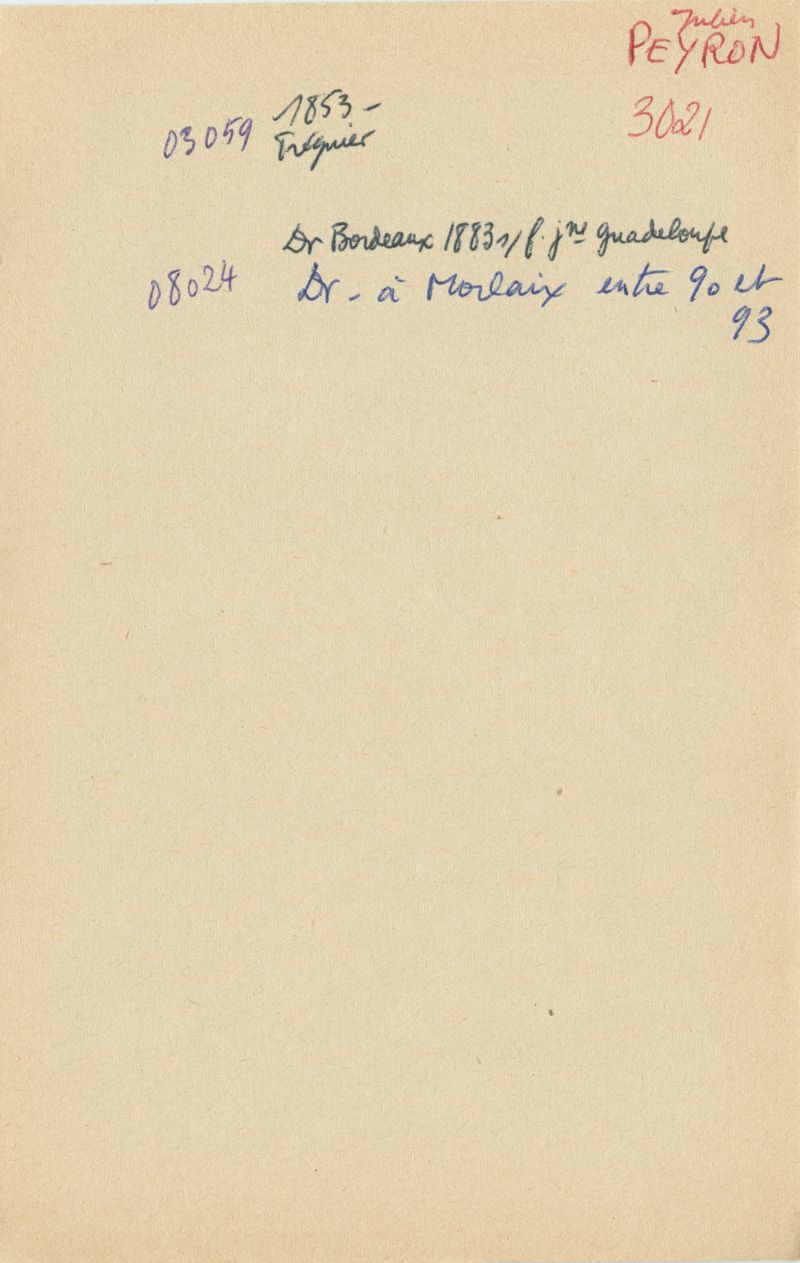 Julien
PEYRON
3021
1853 -
03059 Tréguier
Dr Bordeaux 1883 s/ f. jne guadeloupe
08024 Dr - à Morlaix entre 90 et
93